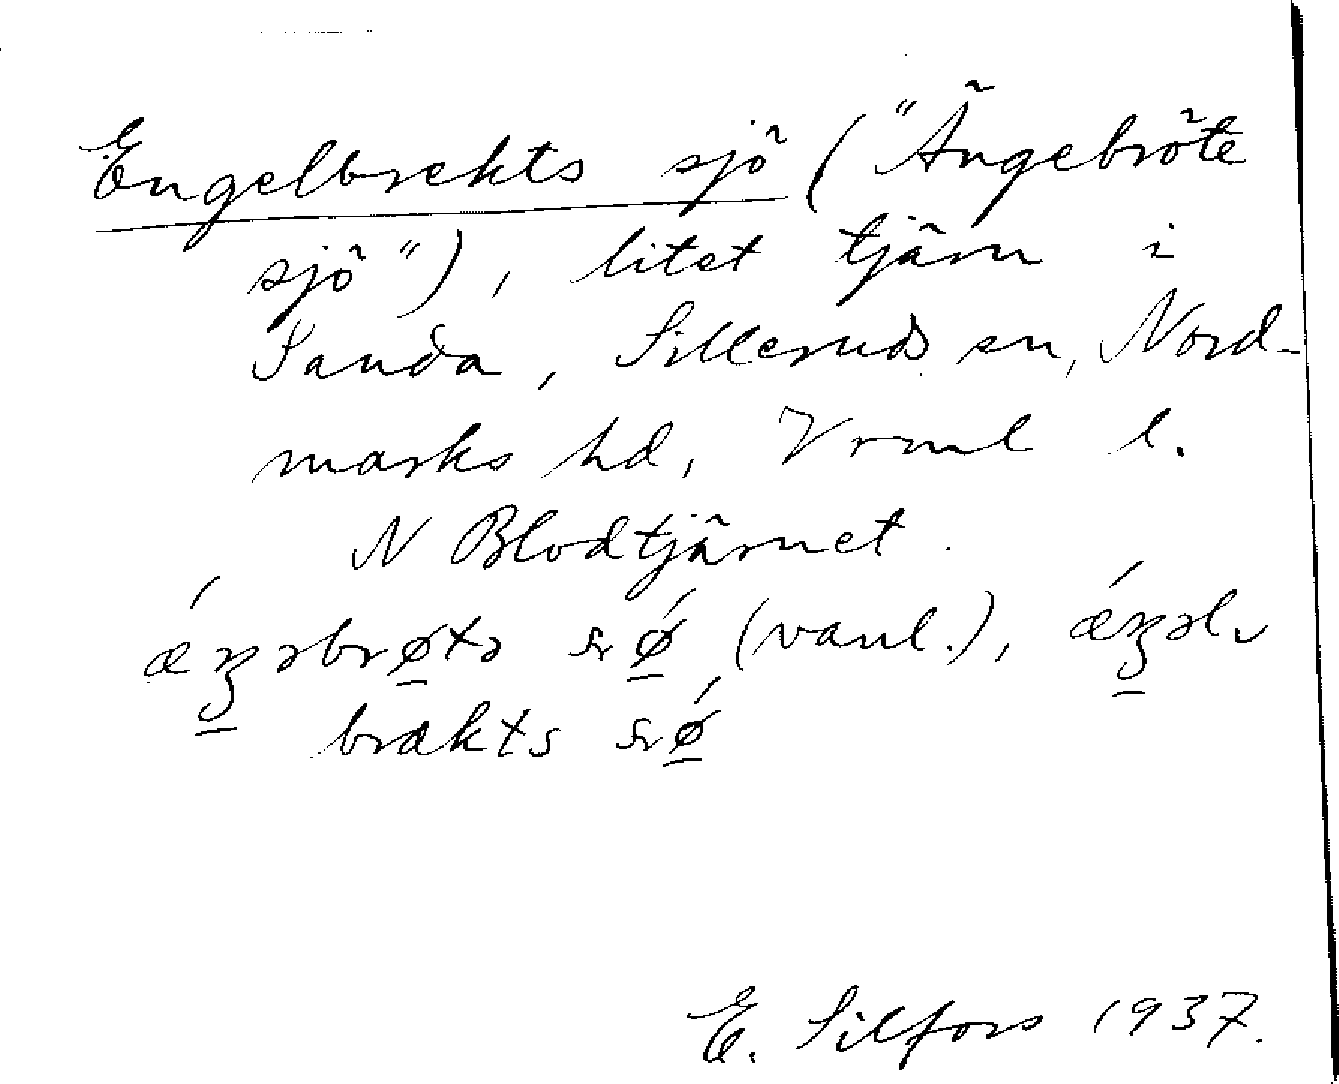 Engelbrekts sjö ("Ängebröte
sjö"), litet tjärn i
Sanda, Silleruds sn, Nord-
marks hd, Vrml l.
N Blodtjärnet.
ǽŋəbrøtə sɾǿ (vanl.), ǽŋəl-
brækts sɾǿ
E. Silfors 1937.